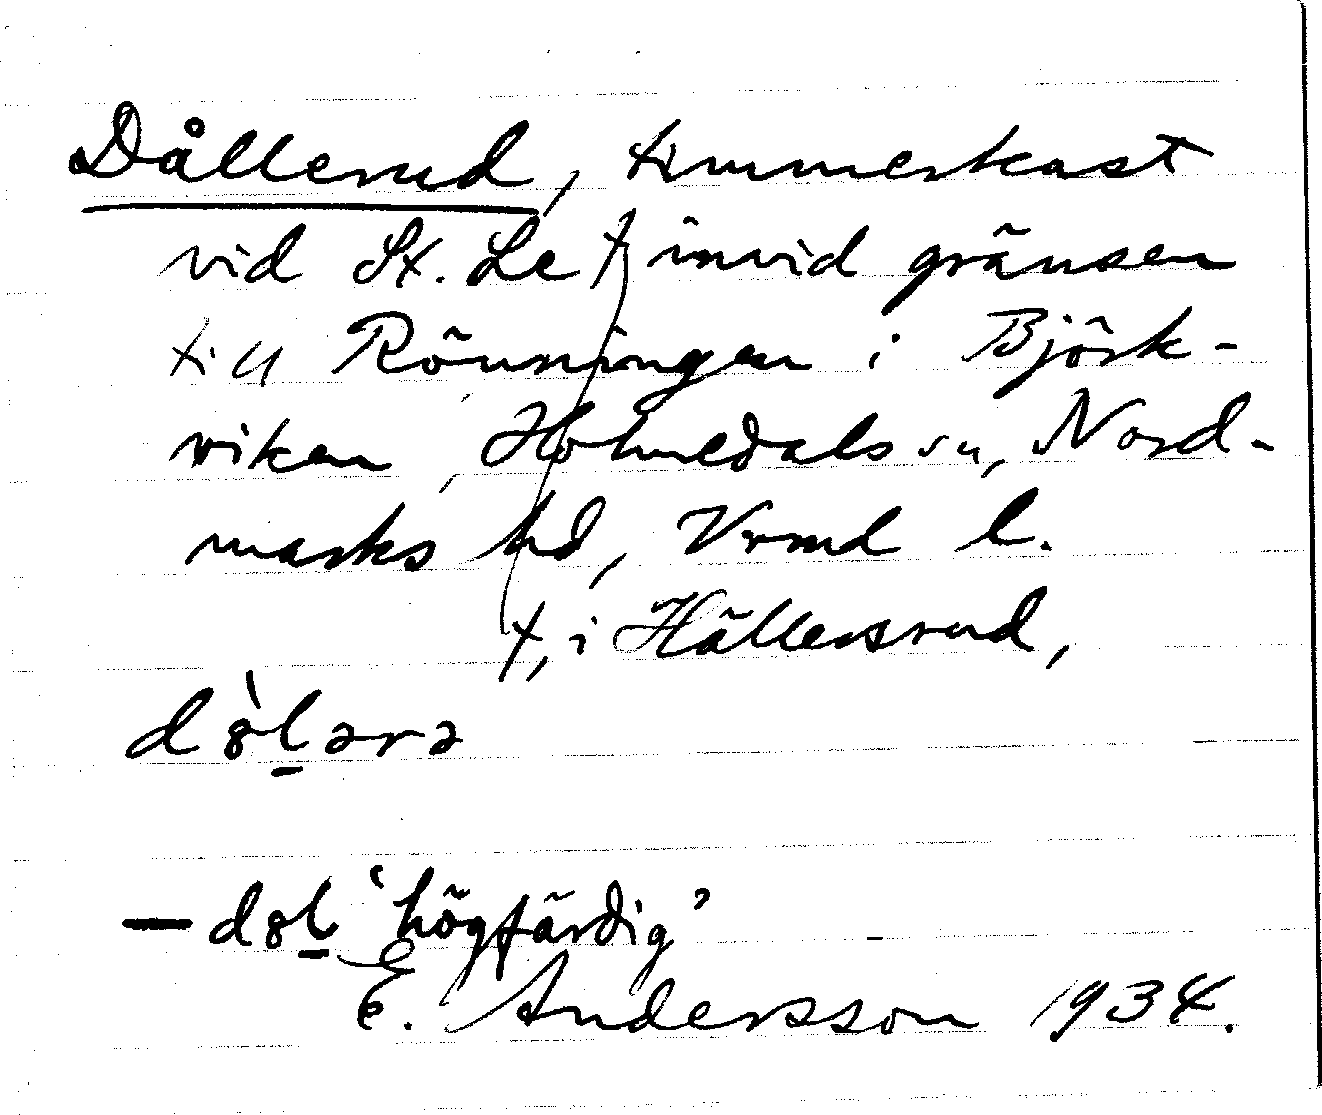 Dållerud, timmerkast
vid St. Le ⨯ invid gränsen
till Rönningen i Björk-
viken, Holmedals sn, Nord-
marks hd, Vrmd l.
⨯, i Hällensrud,
d8̀l̲ərə
— d8l̲ 'högfärdig'
E. Andersson 1934.